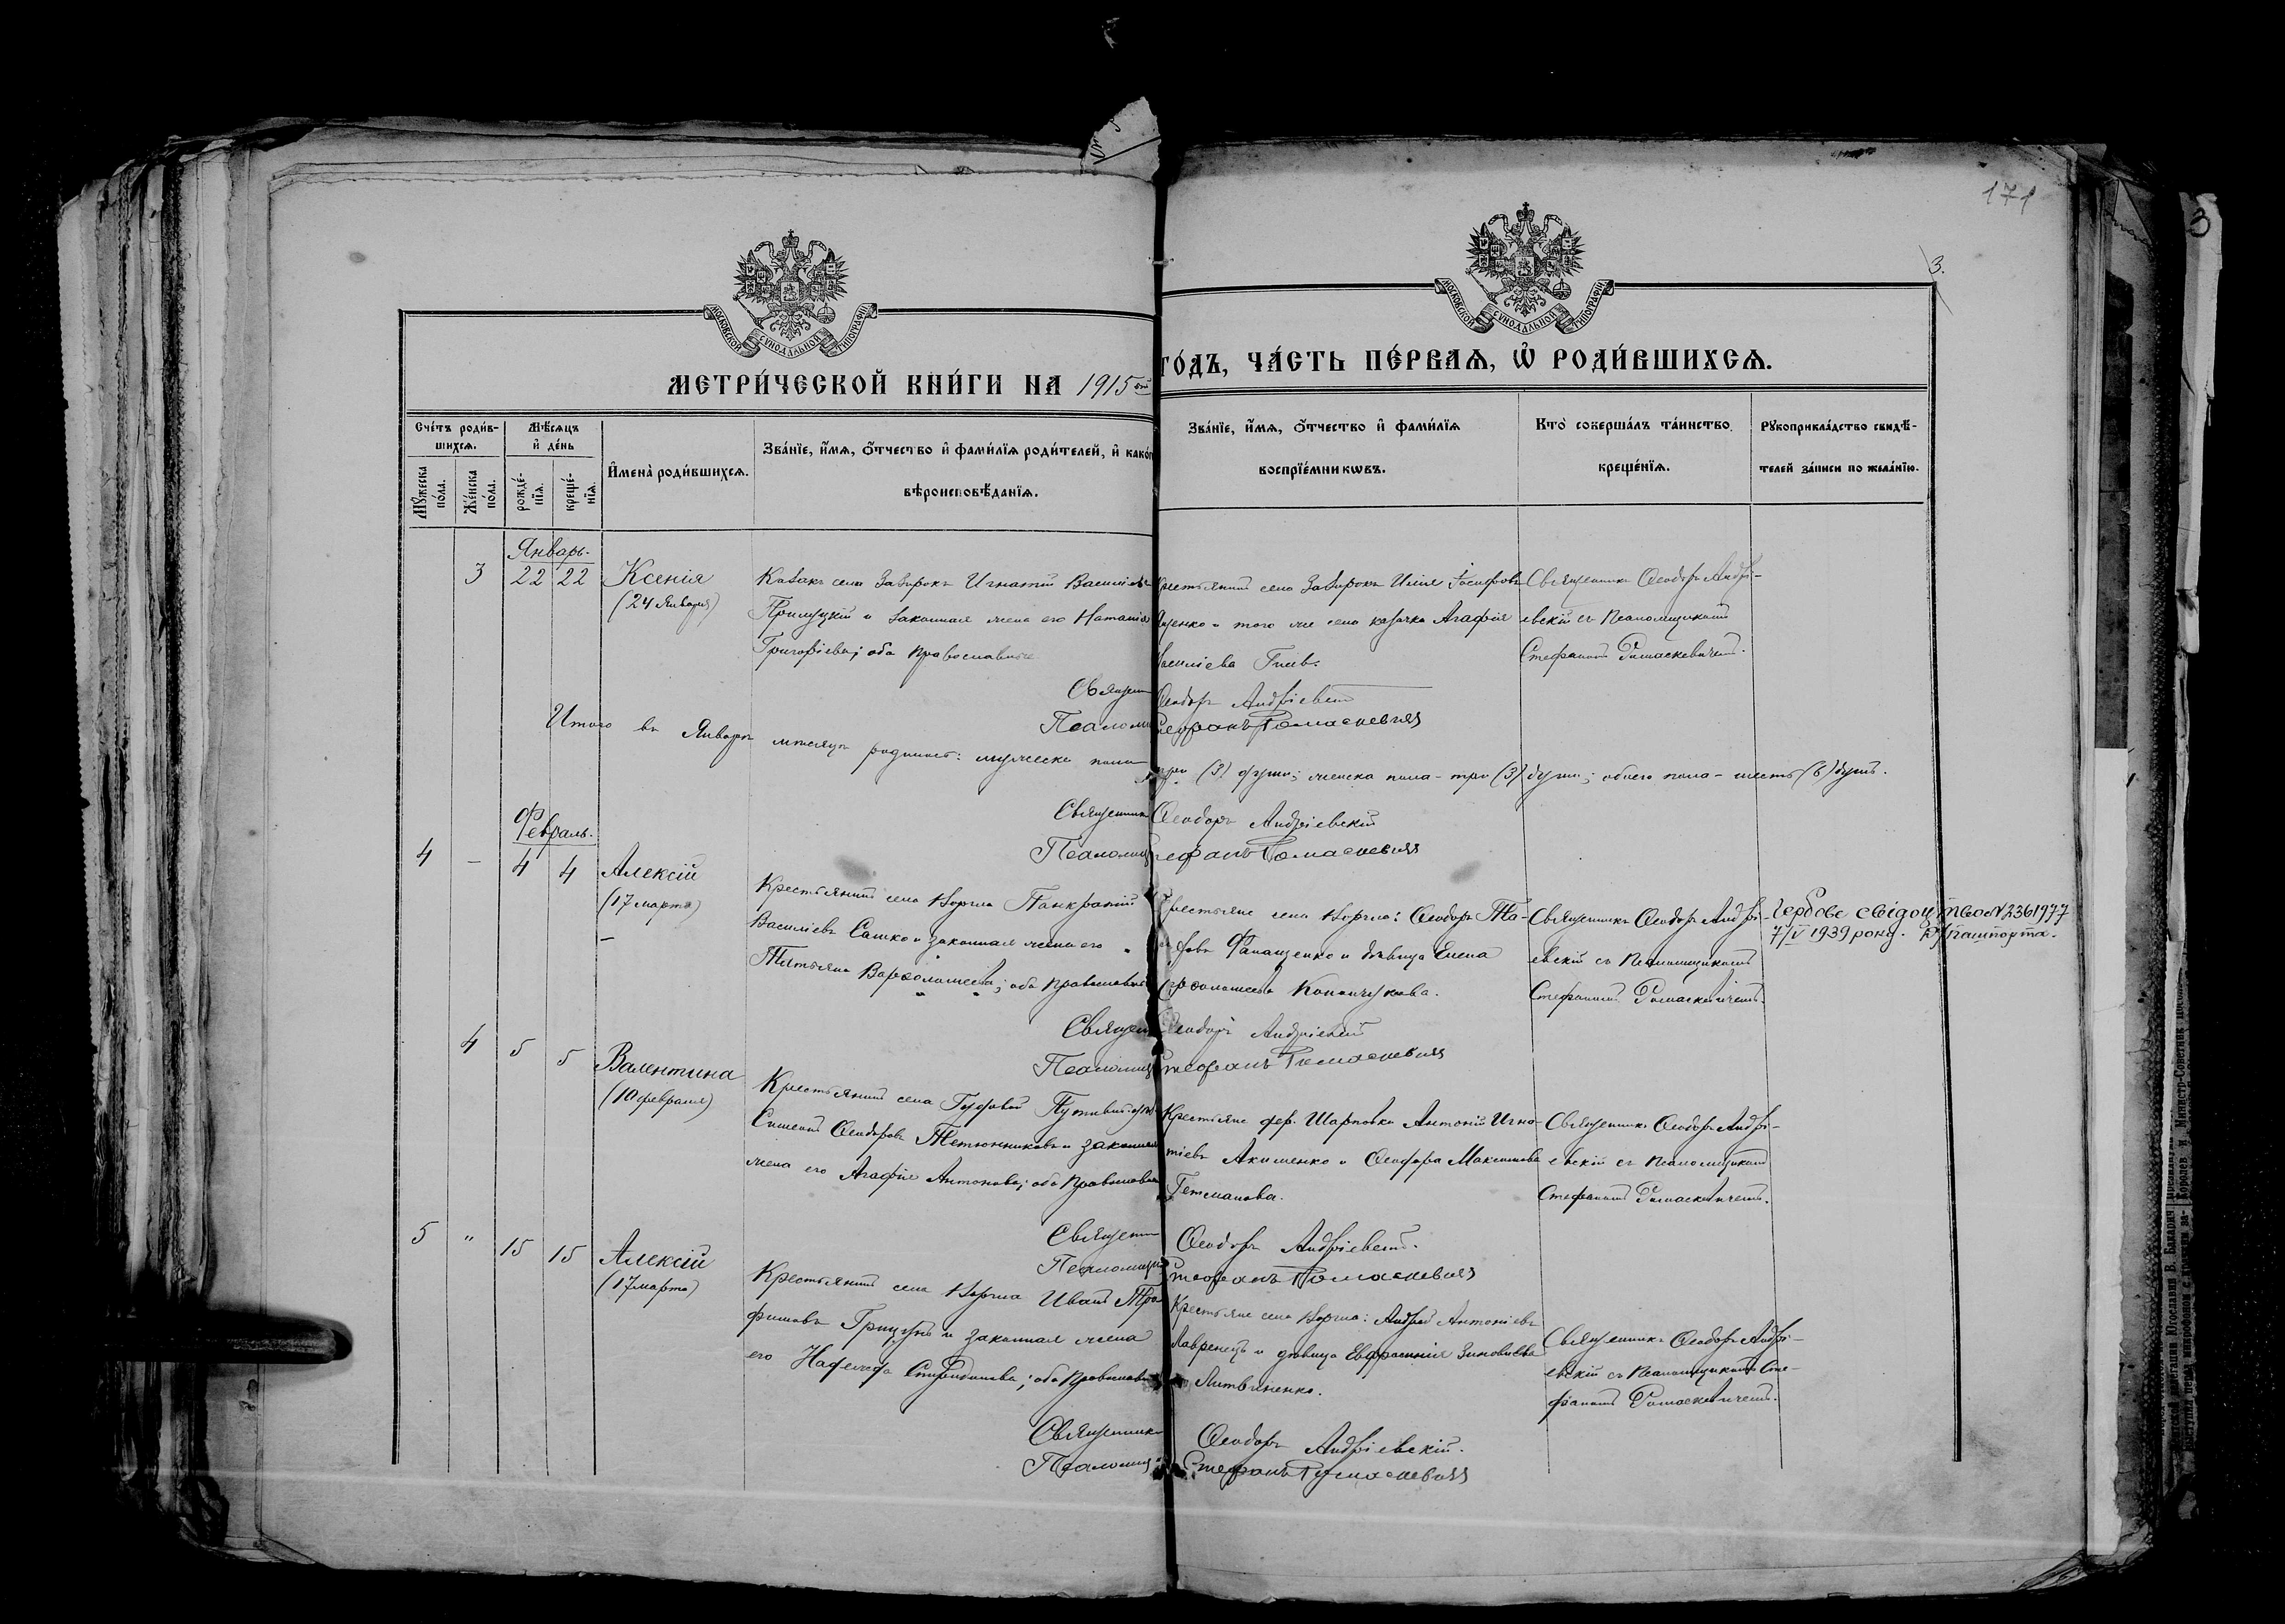 171
3.
МОСКОВСКОЙ СѴНОДАЛЬНОЙ ТИПОГРАФІИ
МОСКОВСКОЙ СѴНОДАЛЬНОЙ ТИПОГРАФІИ
МЕТРИ́ЧЕСКОЙ КНИ́ГИ НА 1915 ый
ГО́ДЪ, ЧА́СТЬ ПЕ́РВАѦ, Ѽ РОДИ́ВШИХСѦ.
Сче́тъ роди́в-
шихсѧ.
Мѣ́сѧцъ
и҆ де́нь
Мꙋ́жеска
по́ла.
Же́нска
по́ла.
рожде́-
нїѧ.
креще́-
нїѧ.
И҆мена̀ роди́вшихсѧ.
Зва́нїе, и҆́мѧ, ѻ҆́тчество и҆ фами́лїѧ роди́телей, и҆ како́г
вѣроисповѣ́данїѧ.
Зва́нїе, и҆́мѧ, ѻ҆́тчество и҆ фами́лїѧ
воспрїе́мникѡвъ.
Кто̀ соверша́лъ та́инство
креще́нїѧ.
Рꙋкоприкла́дство свидѣ́-
телей за́писи по жела́нїю.
Январь.
3 22 22 Ксенія
(24 Января)
Казакъ села Зазирокъ Игнатій Василіевъ
Прилуцкій и законная жена его Наталія
Григоріева; оба православные
Крестьянинъ села Зазирокъ Илія Іосифовъ
ценко и того же села казачка Агафія
Василіева Гпив.
Священникъ Ѳеодоръ Андрі-
евскій съ Псаломщикомъ
Стефаномъ Ромаскевичемъ.
Священ Ѳеодоръ Андріевскій
Псалом Стефанъ Ромаскевичъ
Итого въ Январѣ мѣсяцѣ родилось: мужеска пола три (3) души; женска пола - три (3) души; обоего пола - шесть (6) душъ.
Священник Ѳеодоръ Андріевскій
Псаломщ Стефанъ Ромаскевичъ
Февраль.
4 - 4 4 Алексій
(17 марта)
Крестьянинъ села Воргла Панкратій
Василіевъ Сашко и законная жена его
Татьяна Варѳоломеева; оба православные
Крестьяне села Воргла: Ѳеодоръ
Фанащенко и дѣвица Елена
Варѳоломеева
Священникъ Ѳеодоръ Андрі-
евскій съ Псаломщикомъ
Стефаномъ Ромаскевичемъ.
Гербове свідоцтво № 2361977
7/IV 1939 року. Для пашпорта.
Священ Ѳеодоръ Андріевскій
Псаломщ Стефанъ Ромаскевичъ
4 5 5 Валентина
(10 февраля)
Крестьянинъ села
Симеонъ Ѳеодоровъ Тетюнниковъ и законная
жена его Агафія Антонова; оба православн
Крестьяне дер. Шарповки Антоній Игна-
тіевъ Акименко и Ѳеодора Максимова
Гетманова.
Священникъ Ѳеодоръ Андрі-
евскій съ Псаломщикомъ
Стефаномъ Ромаскевичемъ.
Священ Ѳеодоръ Андріевскій.
Псаломщи Стефанъ Ромаскевичъ
5 " 15 15 Алексій
(17 марта)
Крестьянинъ села Воргла Иванъ Тро-
фимовъ Грицунъ и законная жена
его Надежда Спиридонова; оба православн
Крестьяне села Воргла: Андрей Антоніевъ
Лавренецъ и дѣвица Евфросинія Зиновіева
Литвиненко.
Священникъ Ѳеодоръ Андрі-
евскій съ Псаломщикомъ Сте-
фаномъ Ромаскевичемъ.
Священник Ѳеодоръ Андріевскій.
Псаломщ Стефанъ Ромаскевичъ